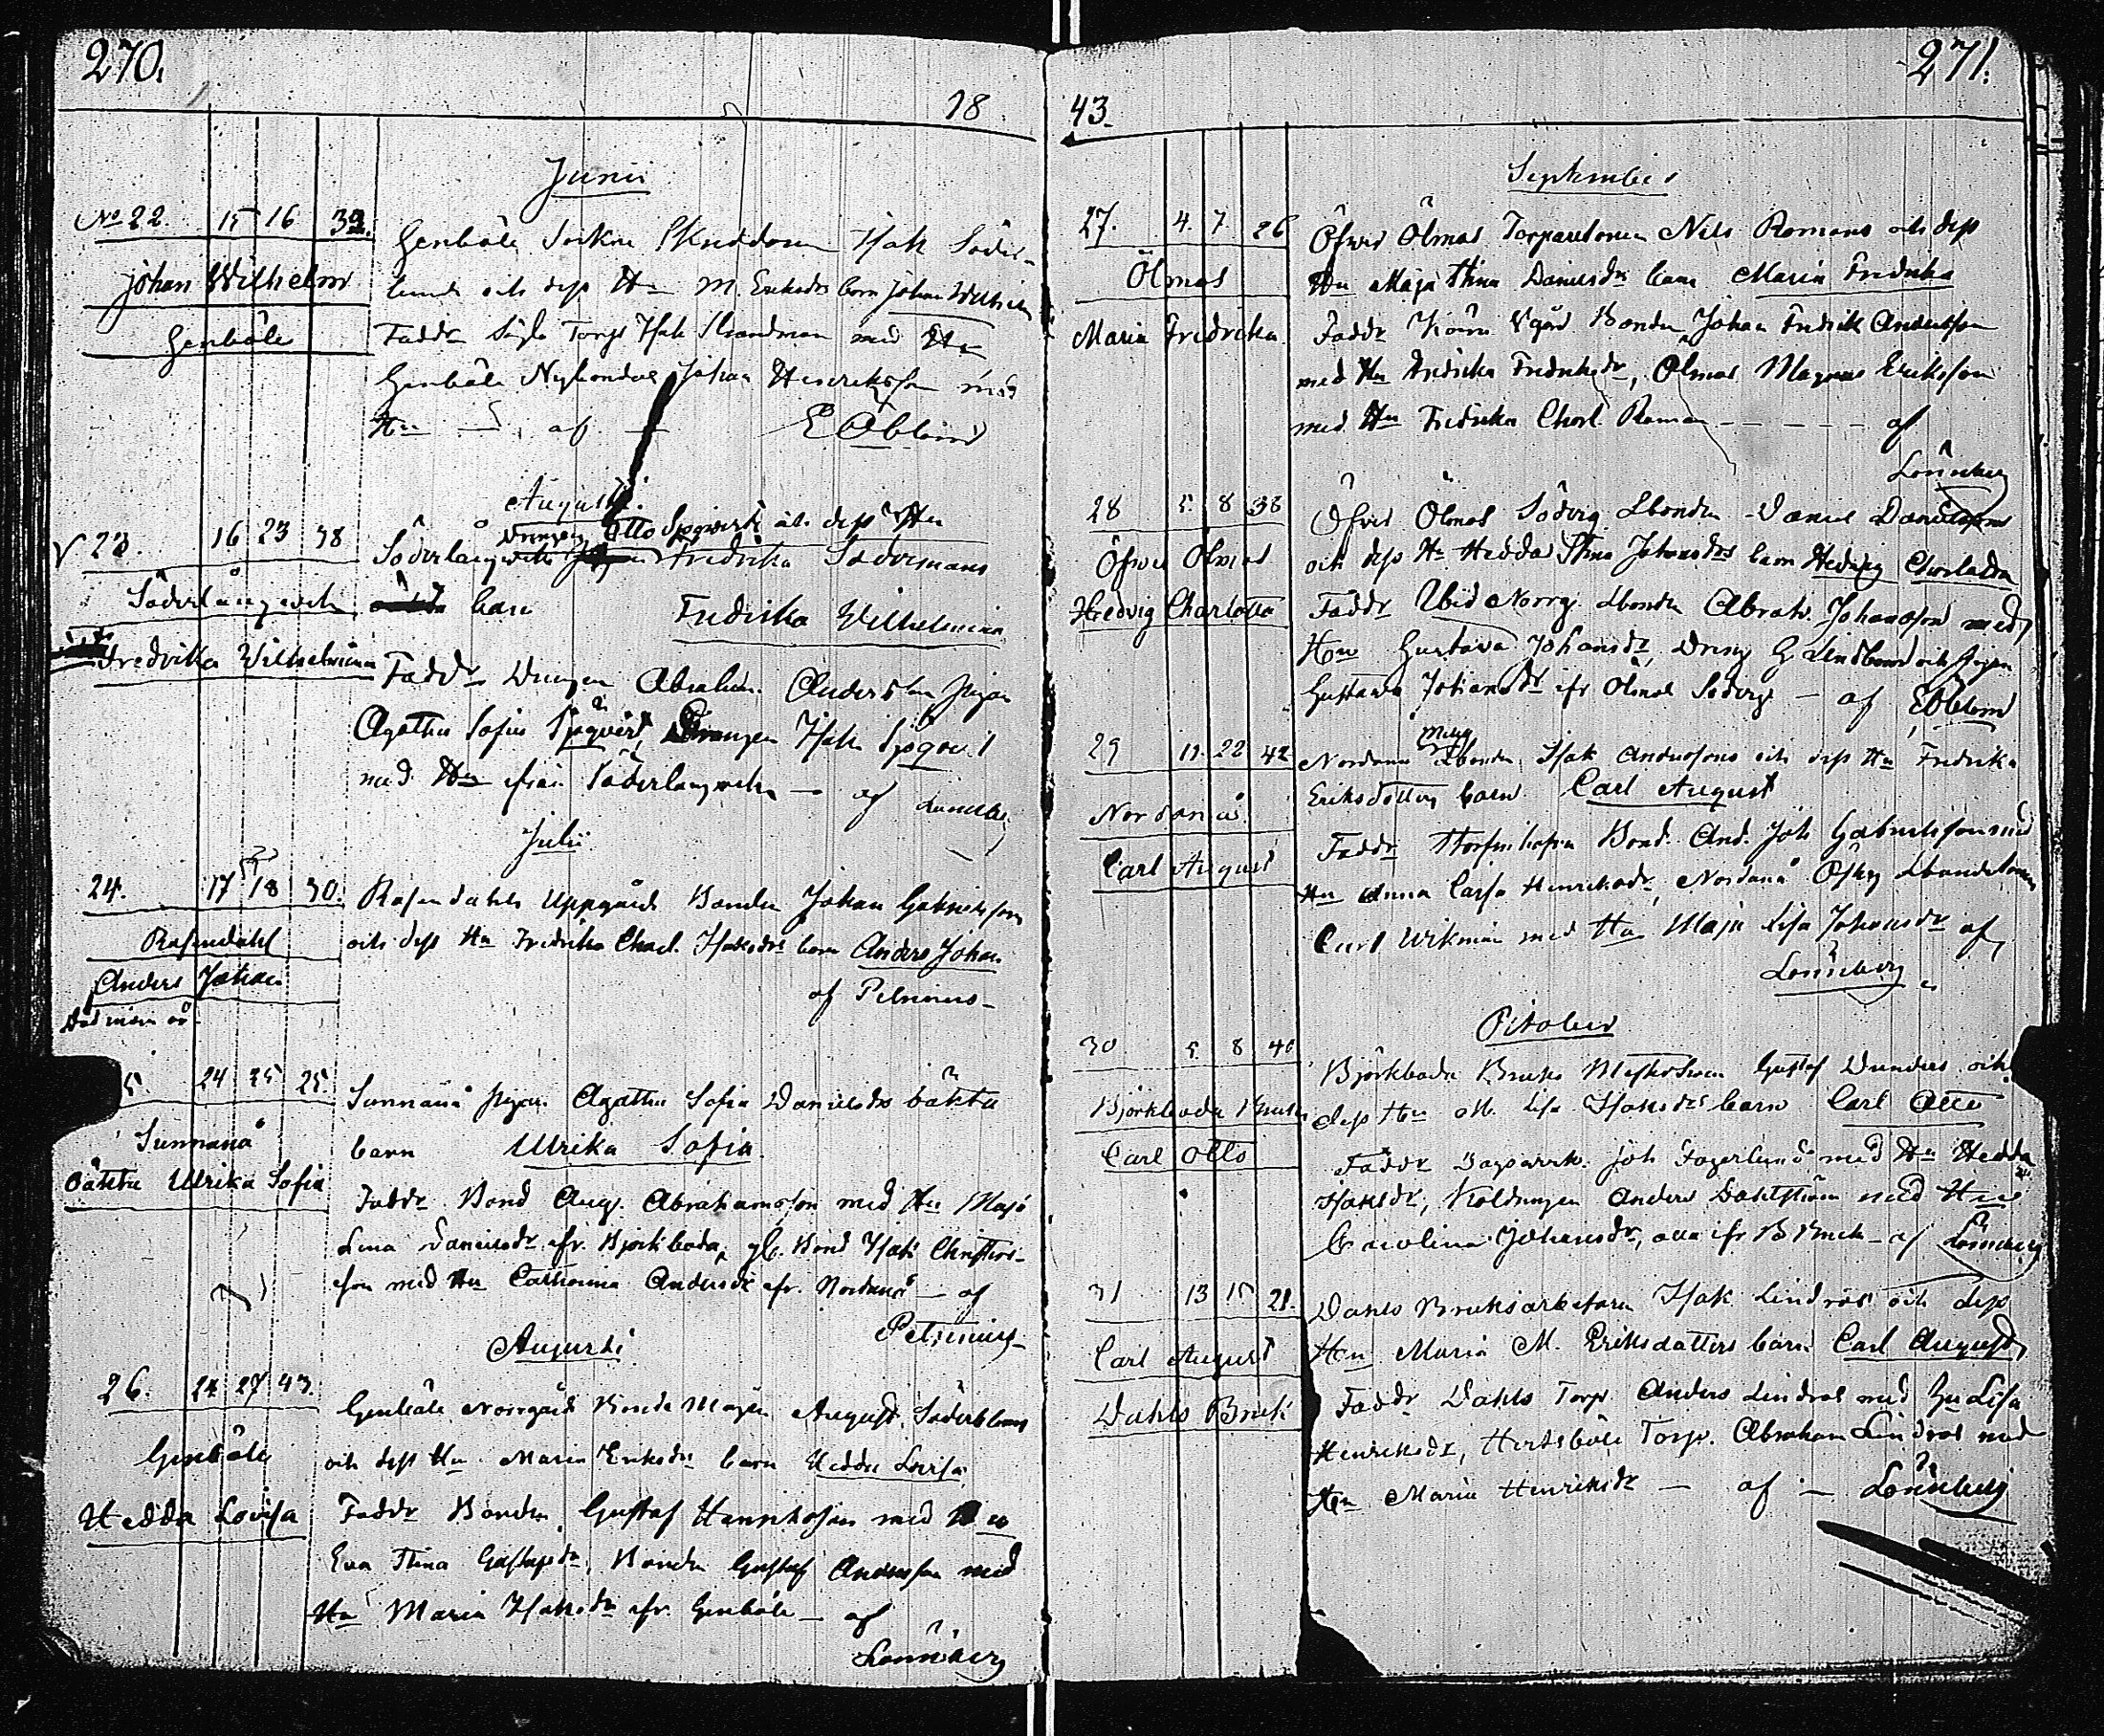 270.
18
Junii
No 22 15 16 32.
Johan Wilhelm
Genböle
Genböle Sockne Skreddaren Isak Söder-
lund och dess Hu M. Eriksdrs barn Johan Wilhelm
Faddr Torp Isak Strandman med Hu
Genböle Nybondas Johan Henriksson med
Hu — af — E Öblom
Augusti.
23. 16 23 38
Söderlångvik
Fredrika Wilhelmina
Drengen Otto Sjögvist och dess Hu
Söderlångviks Fredrika Södermans
barn Fredrika Wilhelmina
Faddr Drengen Abraham Andersson pigan
Agatha Sofia Sjöqvist, Drengen Isak Sjöqvist
med Hu ifrån Söderlangvik — af
Julii
24. 17 18 30.
Rosendahl
Anders Johan
Rosendahls Uppgårds Bonden Johan Gabrielsson
och dess Hu Fredrika Charl. Isaksdrs barn Anders Johan
af Petrenius
5 24 25 25
Sunnanå
oäkta Ulrika Sofia
Sunnanå pigan Agatha Sofia Danielsdrs oäkta
barn Ulrika Sofia
Faddr Bond Aug. Abrahamsson med Hu Maja
Lena Danielsdr ifr. Björkboda, gl. Bond Isak Christers-
son med Hu Catharina Andersdr ifr. Nordanå — af
Petrenius
Augusti
26. 24 27 43.
Genböle
Hedda Lovisa
Genböle Norrgårds Bonde Mågen August Söderblom
och dess Hu Maria Eriksdrs barn Hedda Lovisa
Faddr Bonden Gustaf Henriksson med Hu
Eva Stina Gustafsdr, Bonden Gustaf Andersson med
Hu Maria Isaksdr ifr. Genböle — af
Lönnberg
271.
43.
September
27. 4. 7. 26
Ölmos
Maria Fredrika
Öfver Ölmos Torparesonen Nils Romans och dess
Hu Maja Stina Danielsdrs barn Maria Fredrika
Faddr Vgård Bonden Johan Fredrik Andersson
med Hu Fredrika Fredriksdr, Ölmos Magnus Eriksson
med Hu Fredrika Charl. Roman - - - - - af
Lönnberg
28 5. 8 38
Öfver Ölmos
Hedvig Charlotta
Öfver Ölmos Söderg. Lbonden Daniel Danielssons
och dess Hu Hedda Stina Johansdrs barn Hedvig Charlotta
Faddr Norrg. Lbonden Abrah. Johansson med
Hu Gustava Johansdr, Dreng G Lindbom och pigan
Gustava Johansdr ifr Ölmos Söderg — af EÖblom
29 11. 22 42
Nordanå
Carl August
Nordanå Mellg Lbonden Isak Anderssons och dess Hu Fredrika
Eriksdotters barn Carl August
Faddr Bond. And. Joh Gabrielsson med
Hu Anna Caisa Henriksdr, Nordanå Öfverg Lbondesonen
Carl Wikman med Hu Maja Lisa Johansdr af
Lönnberg
October
30 5. 8 40
Björkboda Bruk
Carl Otto
Björkboda Bruks Gustaf Dunders och
dess Hu M. Lisa Isaksdrs barn Carl Otto
Faddr Joh Fagerlund med Hu Hedda
Isaksdr, Koldrengen Anders Dahlström med Hu
Carolina Johansdr, alla ifr B Bruk — af Lönnberg
31 13 15 21.
Carl August
Dahls Bruk
Dahls Bruksarbetaren Isak Lindros och dess
Hu Maria M. Eriksdotters barn Carl August,
Faddr Dahls Torp. Anders Lindros med Hu Lisa
Henriksdr, Hertsböle Torp. Abraham Lindros med
Hu Maria Henriksdr — af — Lönnberg